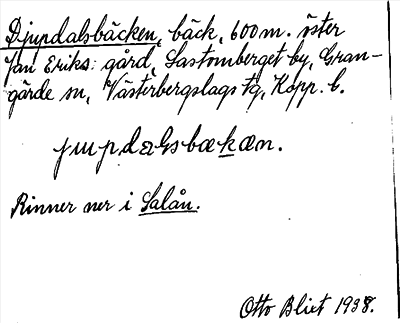 Djupdalsbäcken, bäck, 600 m. öster
Jan Eriks: gård, Lastomberget by, Gran-
gärde sn, Västerbergslags tg, Kopp. l.
jupdalsbækæn.
Rinner ner i Salån.
Otto Blixt 1938.